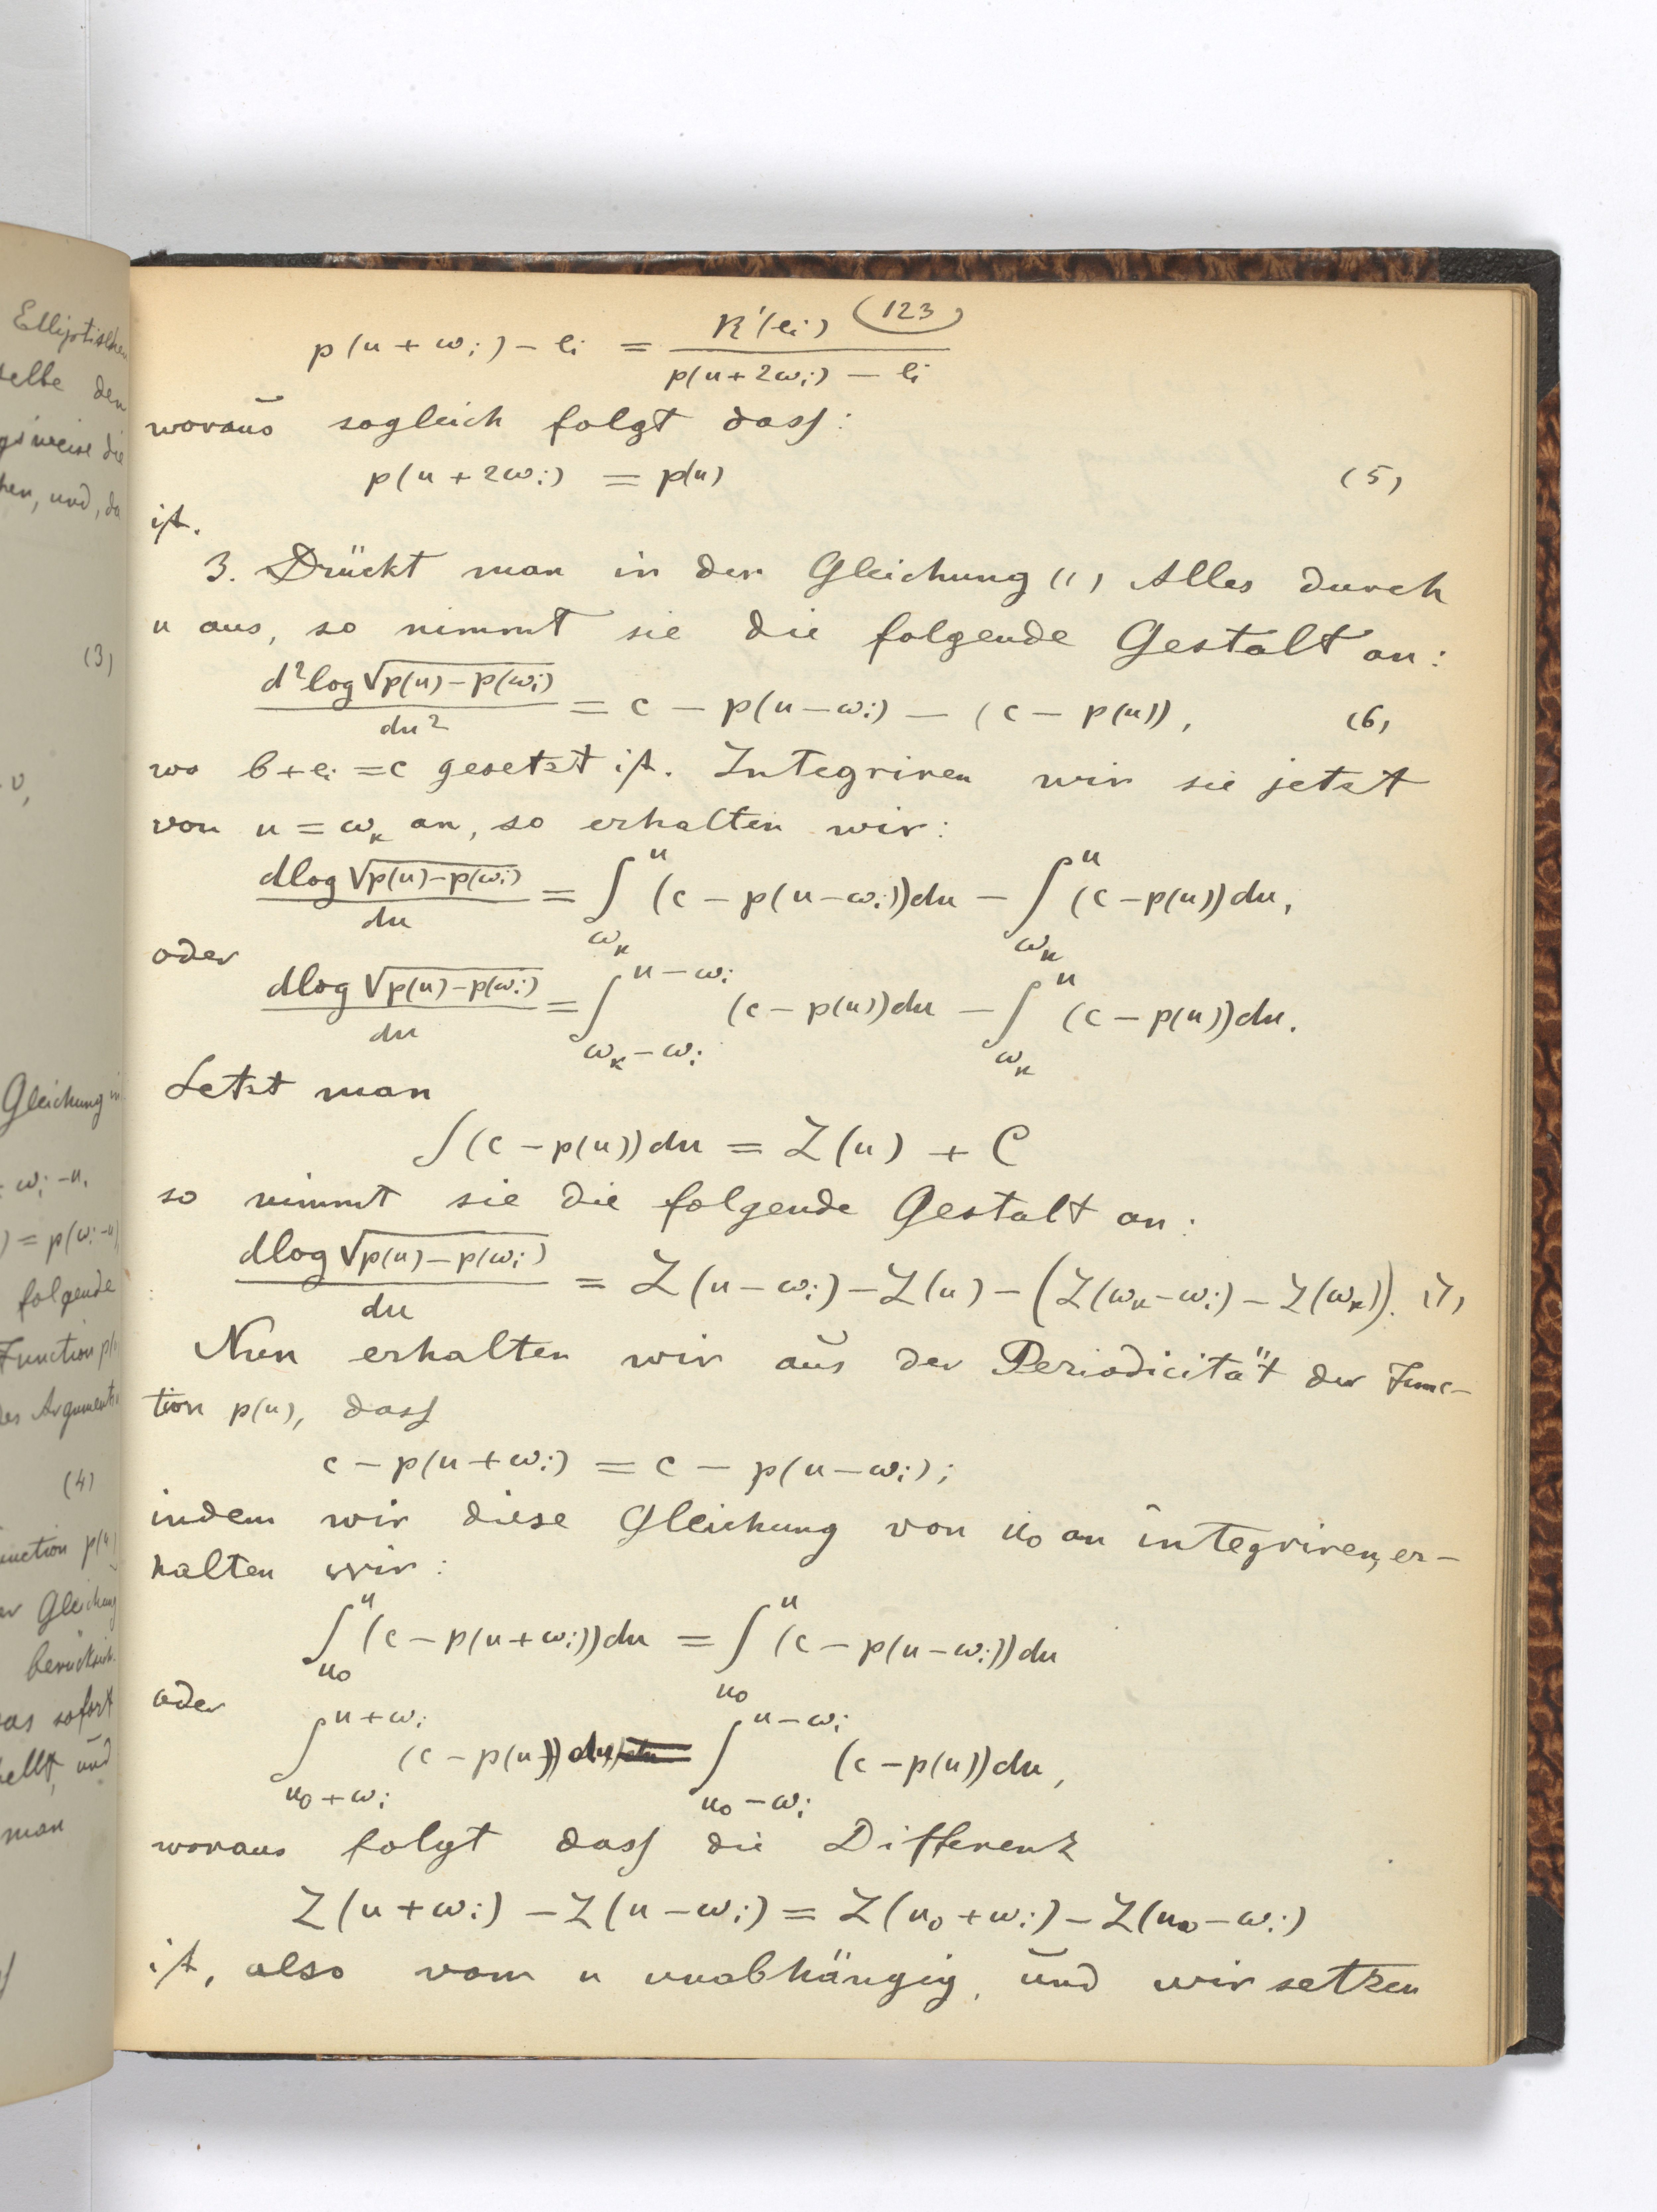 Elliptischen
selbe den
gsweise die
hen, und, da
(3)
v,
Gleichung in
= ωi - u,
) = p(ωi - u)
folgende
Function p(
des Arguments
(4)
unction p(u)
er Gleichung
berücksich.
as sofort
ellt, und
man
(123)
p(u + ωi) - ei = R'(ei) / (p(u + 2ωi) - ei)
woraus sogleich folgt dass:
p(u + 2ωi) = p(u) (5)
ist.
3. Drückt man in der Gleichung (1) Alles durch
u aus, so nimmt sie die folgende Gestalt an:
d² log √(p(u) - p(ωi)) / du² = c - p(u - ωi) - (c - p(u)), (6)
wo b + ei = c gesetzt ist. Integriren wir sie jetzt
von u = ωκ an, so erhalten wir:
dlog √(p(u) - p(ωi)) / du = ∫_{ωκ}^{u} (c - p(u - ωi)) du - ∫_{ωκ}^{u} (c - p(u)) du,
oder
dlog √(p(u) - p(ωi)) / du = ∫_{ωκ - ωi}^{u - ωi} (c - p(u)) du - ∫_{ωκ}^{u} (c - p(u)) du.
Setzt man
∫ (c - p(u)) du = Z(u) + C
so nimmt sie die folgende Gestalt an:
dlog √(p(u) - p(ωi)) / du = Z(u - ωi) - Z(u) - (Z(ωκ - ωi) - Z(ωκ)). (7)
Nun erhalten wir aus der Periodicität der Func-
tion p(u), dass
c - p(u + ωi) = c - p(u - ωi);
indem wir diese Gleichung von u0 an integriren, er-
halten wir:
∫_{u0}^{u} (c - p(u + ωi)) du = ∫_{u0}^{u} (c - p(u - ωi)) du
oder
∫_{u0 + ωi}^{u + ωi} (c - p(u)) du = ∫_{u0 - ωi}^{u - ωi} (c - p(u)) du,
woraus folgt dass die Differenz
Z(u + ωi) - Z(u - ωi) = Z(u0 + ωi) - Z(u0 - ωi)
ist, also vom u unabhängig, und wir setzen